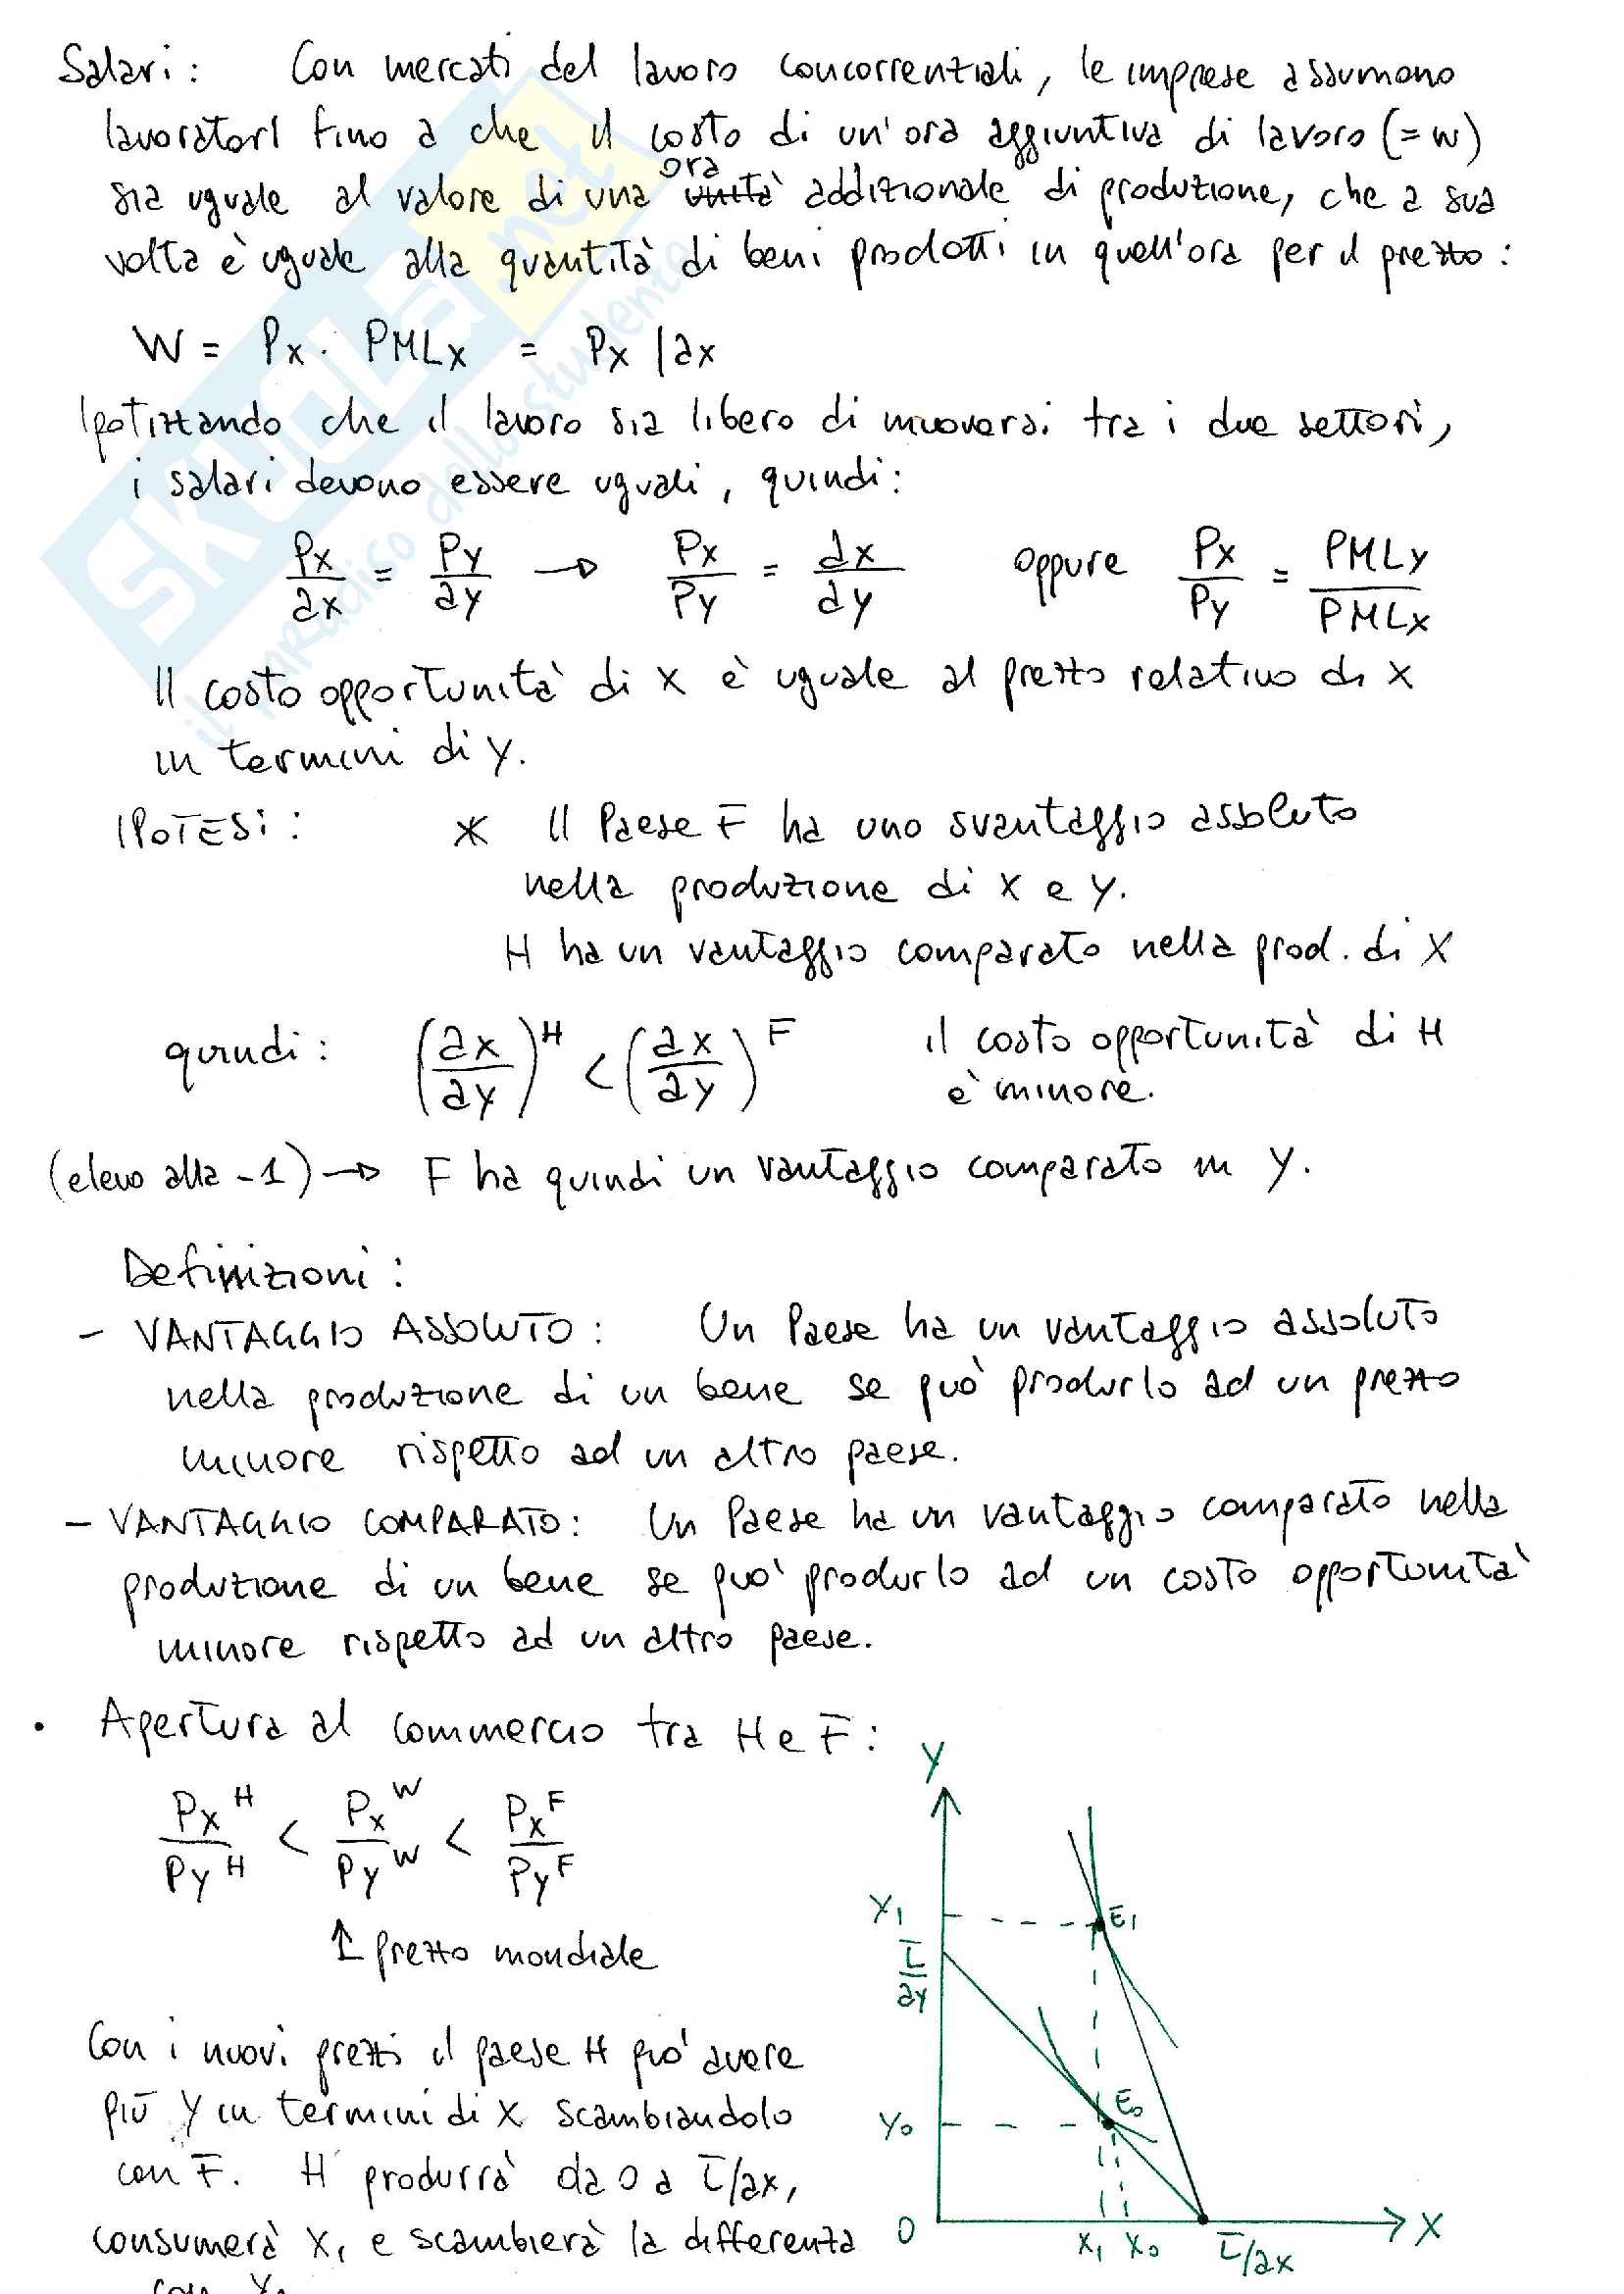 Salari: Con mercati del lavoro concorrenziali, le imprese assumono
lavoratori fino a che il costo di un'ora aggiuntiva di lavoro (=w)
ora
sia uguale al valore di una unità addizionale di produzione, che a sua
volta è uguale alla quantità di beni prodotti in quell'ora per il prezzo:
W = Px · PMLx = Px / ax
Ipotizzando che il lavoro sia libero di muoversi tra i due settori,
i salari devono essere uguali, quindi:
Px/ax = Py/ay → Px/Py = ax/ay oppure Px/Py = PMLy/PMLx
Il costo opportunità di X è uguale al prezzo relativo di X
in termini di y.
IPOTESI: * Il Paese F ha uno svantaggio assoluto
nella produzione di X e y.
H ha un vantaggio comparato nella prod. di X
quindi: (ax/ay)^H < (ax/ay)^F il costo opportunità di H
è minore.
(elevo alla -1) → F ha quindi un vantaggio comparato in y.
Definizioni:
- VANTAGGIO ASSOLUTO: Un Paese ha un vantaggio assoluto
nella produzione di un bene se può produrlo ad un prezzo
minore rispetto ad un altro paese.
- VANTAGGIO COMPARATO: Un Paese ha un vantaggio comparato nella
produzione di un bene se può produrlo ad un costo opportunità
minore rispetto ad un altro paese.
• Apertura al commercio tra H e F:
Px^H/Py^H < Px^W/Py^W < Px^F/Py^F
↑ prezzo mondiale
Con i nuovi prezzi il paese H può avere
più y in termini di X scambiandolo
con F. H produrrà da 0 a L̄/ax,
consumerà X1 e scambierà la differenza
con Y1
Y
Y1
E1
L̄/ay
E0
Y0
0
X1 X0 L̄/ax
X
SKUOLA.net
il paradiso dello studente